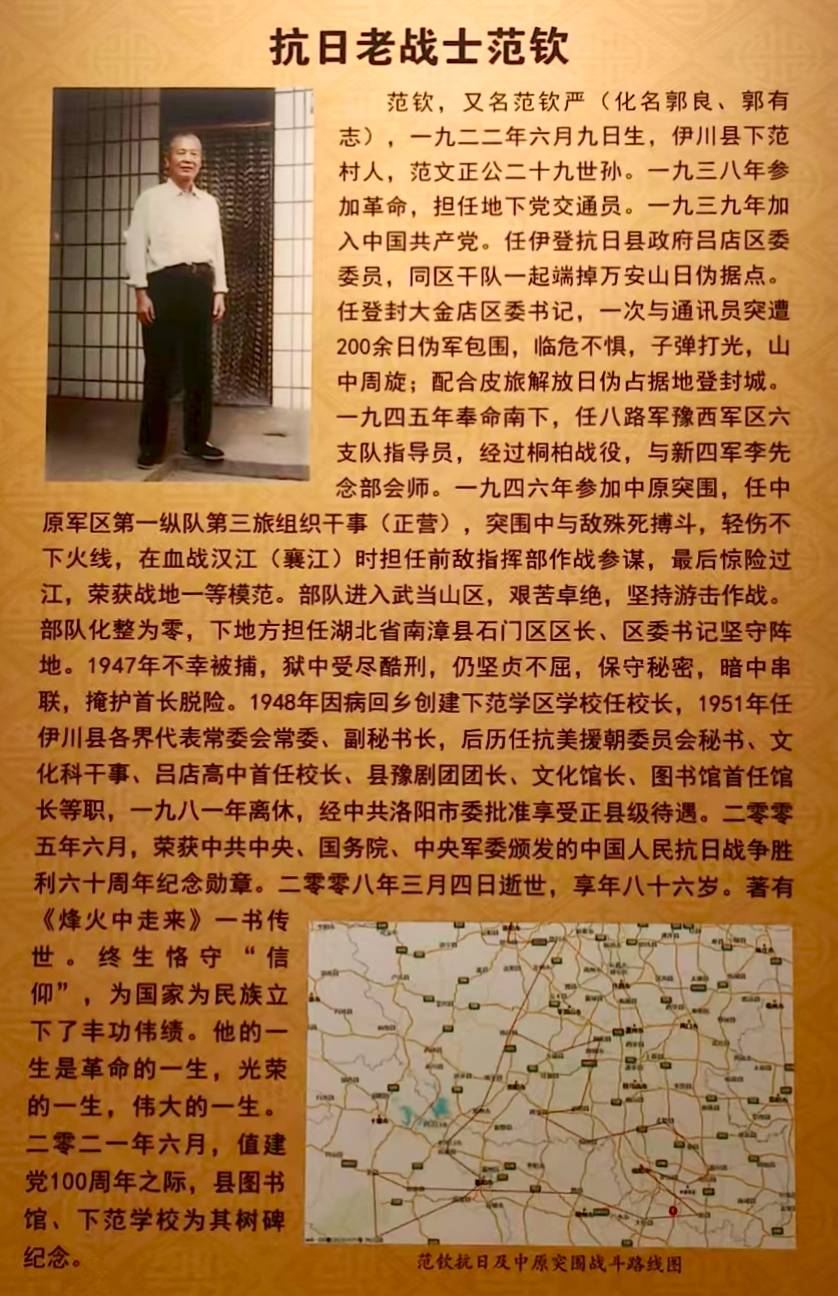 抗日老战士范钦
范钦，又名范钦严（化名郭良、郭有
志），一九二二年六月九日生，伊川县下范
村人，范文正公二十九世孙。一九三八年参
加革命，担任地下党交通员。一九三九年加
入中国共产党。任伊登抗日县政府吕店区委
委员，同区干队一起端掉万安山日伪据点。
任登封大金店区委书记，一次与通讯员突遭
200余日伪军包围，临危不惧，子弹打光，山
中周旋；配合皮旅解放日伪占据地登封城。
一九四五年奉命南下，任八路军豫西军区六
支队指导员，经过桐柏战役，与新四军李先
念部会师。一九四六年参加中原突围，任中
原军区第一纵队第三旅组织干事（正营），突围中与敌殊死搏斗，轻伤不
下火线，在血战汉江（襄江）时担任前敌指挥部作战参谋，最后惊险过
江，荣获战地一等模范。部队进入武当山区，艰苦卓绝，坚持游击作战。
部队化整为零，下地方担任湖北省南漳县石门区区长、区委书记坚守阵
地。1947年不幸被捕，狱中受尽酷刑，仍坚贞不屈，保守秘密，暗中串
联，掩护首长脱险。1948年因病回乡创建下范学区学校任校长，1951年任
伊川县各界代表常委会常委、副秘书长，后历任抗美援朝委员会秘书、文
化科干事、吕店高中首任校长、县豫剧团团长、文化馆长、图书馆首任馆
长等职，一九八一年离休，经中共洛阳市委批准享受正县级待遇。二零零
五年六月，荣获中共中央、国务院、中央军委颁发的中国人民抗日战争胜
利六十周年纪念勋章。二零零八年三月四日逝世，享年八十六岁。著有
《烽火中走来》一书传
世。终生恪守“信
仰”，为国家为民族立
下了丰功伟绩。他的一
生是革命的一生，光荣
的一生，伟大的一生。
二零二一年六月，值建
党100周年之际，县图书
馆、下范学校为其树碑
纪念。
范钦抗日及中原突围战斗路线图